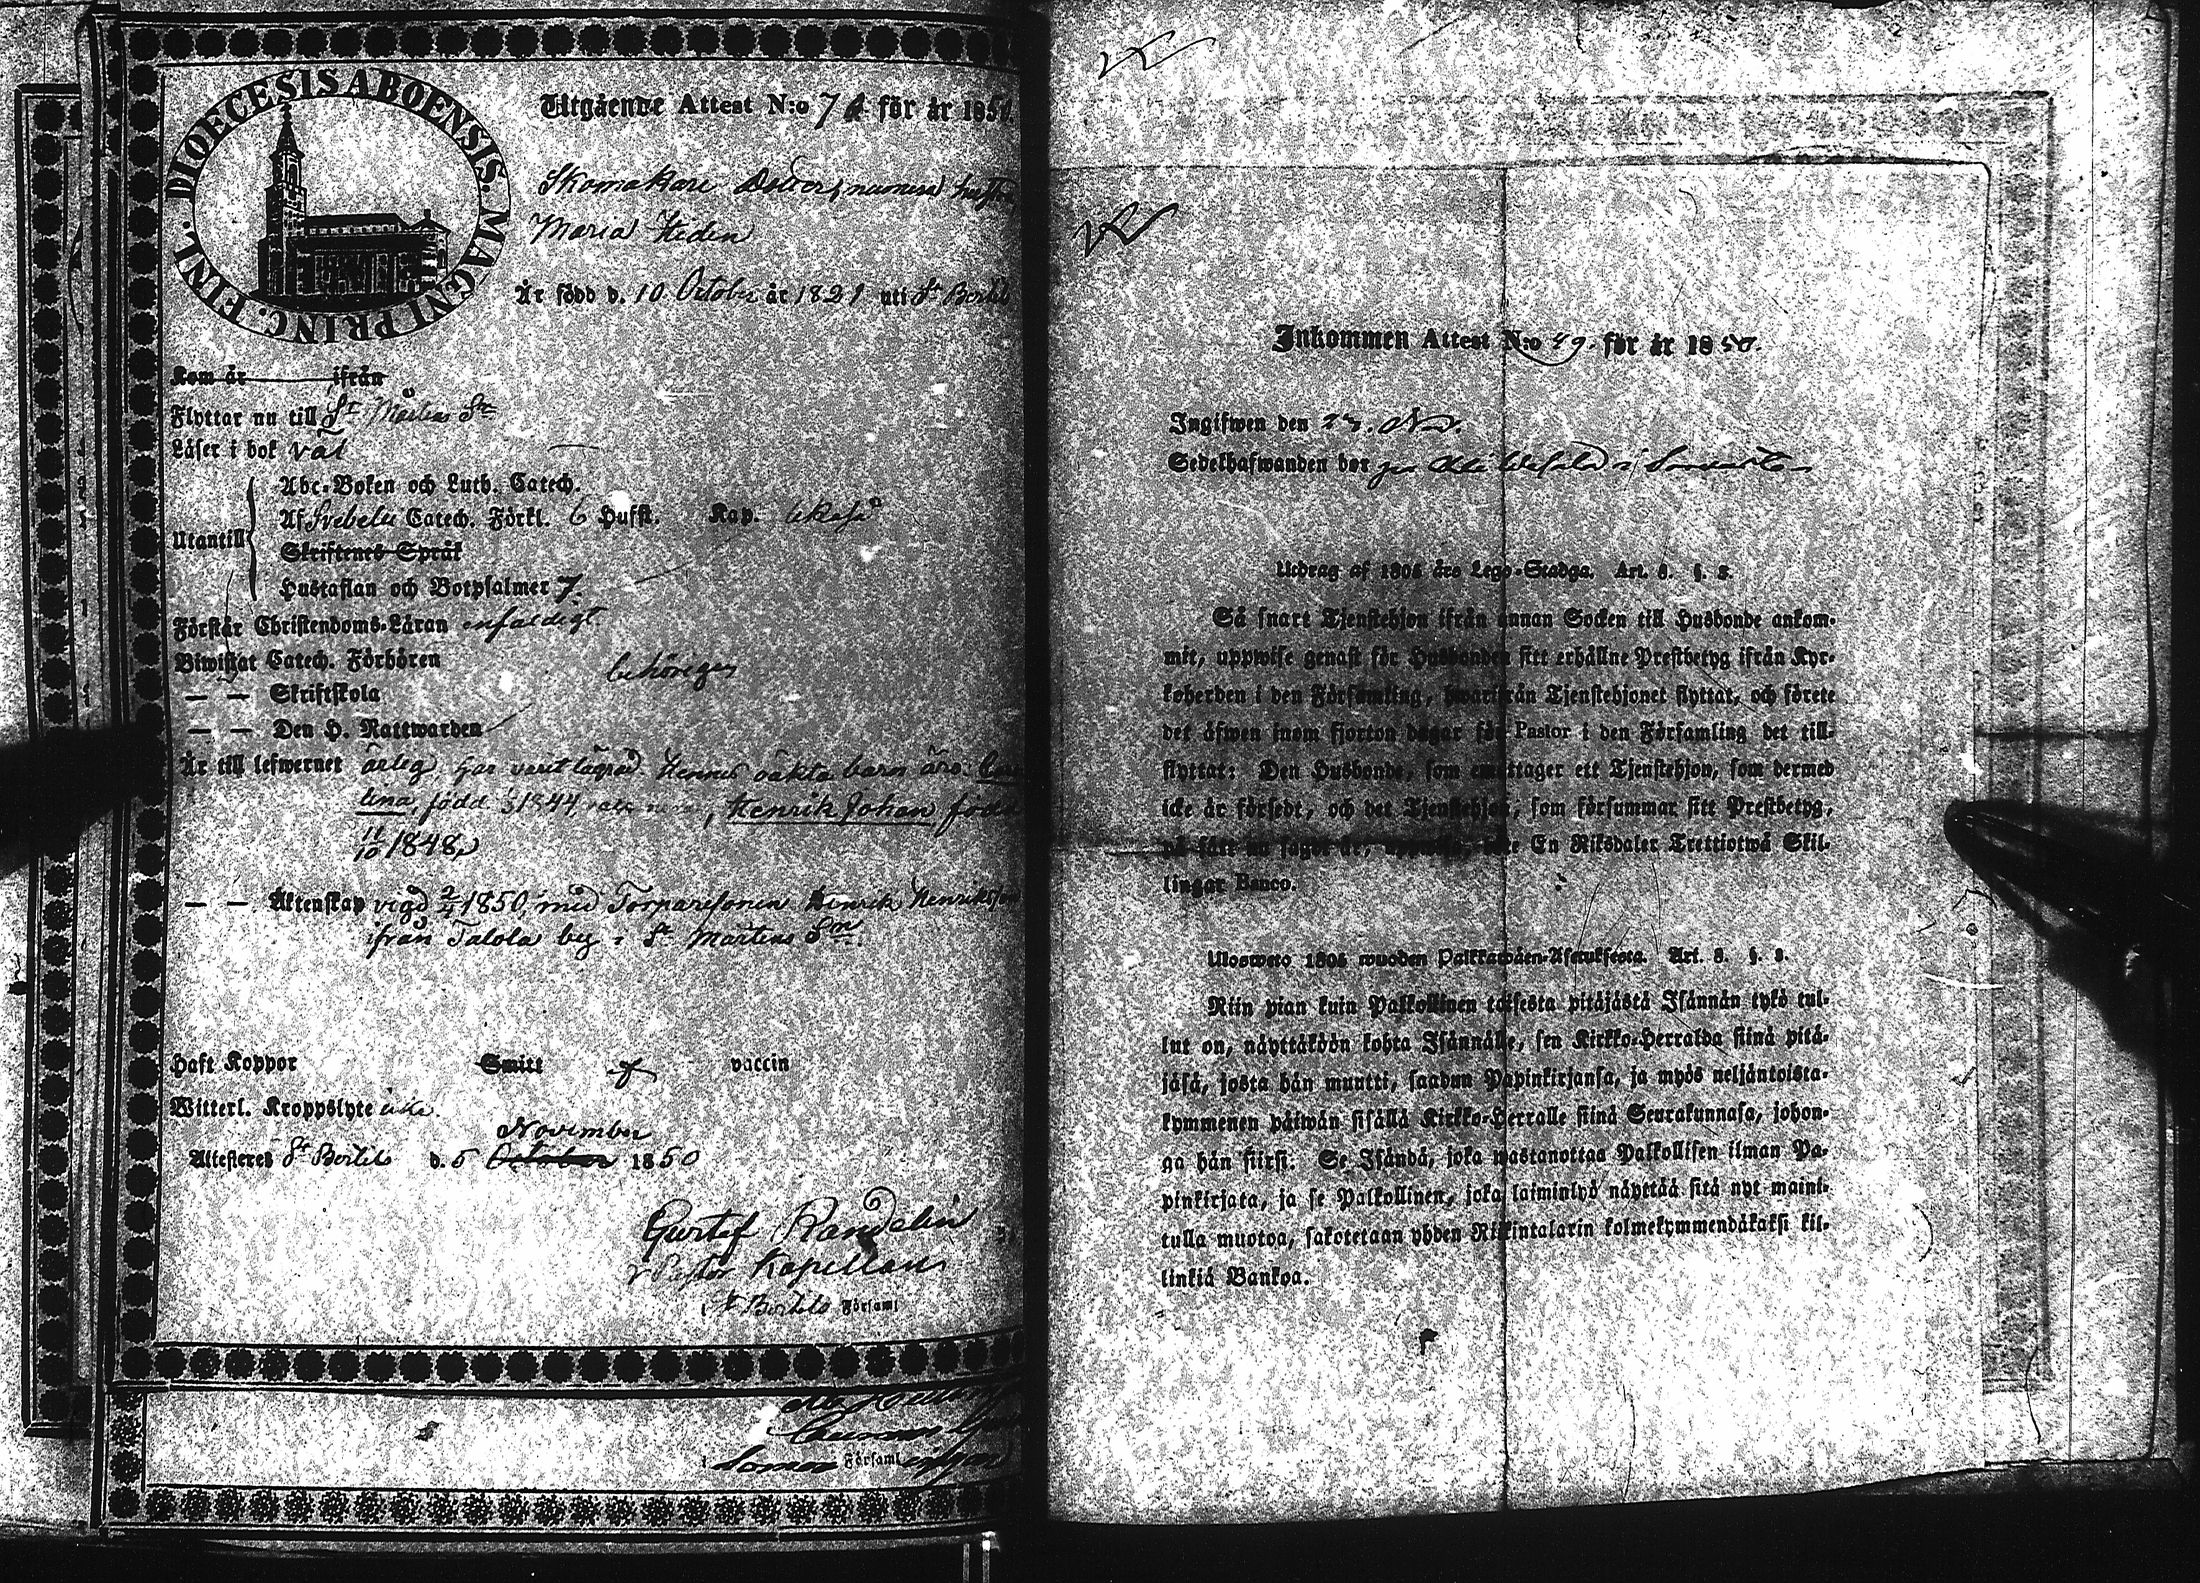 DIOECESIS ABOENSIS. MAGNI PRINC. FINL.
Utgående Attest N:o 7 för år 1850.
Skomakare Dotter, numera hustru
Maria Hedén
Är född d. 10 October år 1821 uti St Bertils
Kom år ifrån
Flyttar nu till St Mårtens Sn
Läser i bok väl
Utantill
Abc-Boken och Luth. Catech.
Af Svebelii Catech. Förkl. 6 Hufst. Kap. likaså
Skriftenes Språk
Hustaflan och Botpsalmer 7.
Förstår Christendoms-Läran enfaldigt
Biwistat Catech. Förhören
— — Skriftskola behörigen
— — Den H. Nattwarden
Är till lefwernet ärlig, har varit lägrad. Hennes oäkta barn äro:
lina, född 1844, Henrik Johan, född
11/10 1848,
— — Äktenskap vigd 2/4 1850, med Torparesonen Henrik Henriksson
från Talola by i St Mårtens Sn.
Haft Koppor Smitt vaccin
Witterl. Kroppslyte icke.
November
Attesteres St Bertils d. 5 October 1850
Gustaf Randelin
v Pastor Kapellan
i St Bertils Församl
i Somero Församl
Inkommen Attest N:o 49. för år 1850.
Ingifwen den 24. Nov.
Sedelhafwanden bor
Utdrag af 1805 års Lego-Stadga. Art. 8. §. 3.
Så snart Tjenstehjon ifrån annan Socken till Husbonde ankom-
mit, uppwise genast för Husbonden sitt erhållne Prestbetyg ifrån Kyr-
koherden i den Församling, hwarifrån Tjenstehjonet flyttat, och förete
det äfwen inom fjorton dagar för Pastor i den Församling det till-
flyttat: Den Husbonde, som emottager ett Tjenstehjon, som dermed
icke är försedt, och det Tjenstehjon, som försummar sitt Prestbetyg,
på sätt nu sagdt är, uppwisa, böte En Riksdaler Trettiotwå Skil-
lingar Banco.
Ulosweto 1805 wuoden Palkkawäen-Asetuksesta. Art. 8. §. 3.
Niin pian kuin Palkollinen toisesta pitäjästä Isännän tykö tul-
lut on, näyttäköön kohta Isännälle, sen Kirkko-Herralda siinä pitä-
jäsä, josta hän muutti, saadun Papinkirjansa, ja myös neljäntoista-
kymmenen päiwän sisällä Kirkko-Herralle siinä Seurakunnasa, johon-
ga hän siirsi: Se Isändä, joka wastanottaa Palkollisen ilman Pa-
pinkirjata, ja se Palkollinen, joka laiminlyö näyttää sitä nyt maini-
tulla muotoa, sakotetaan yhden Riikintalarin kolmekymmendäkaksi kil-
linkiä Bankoa.